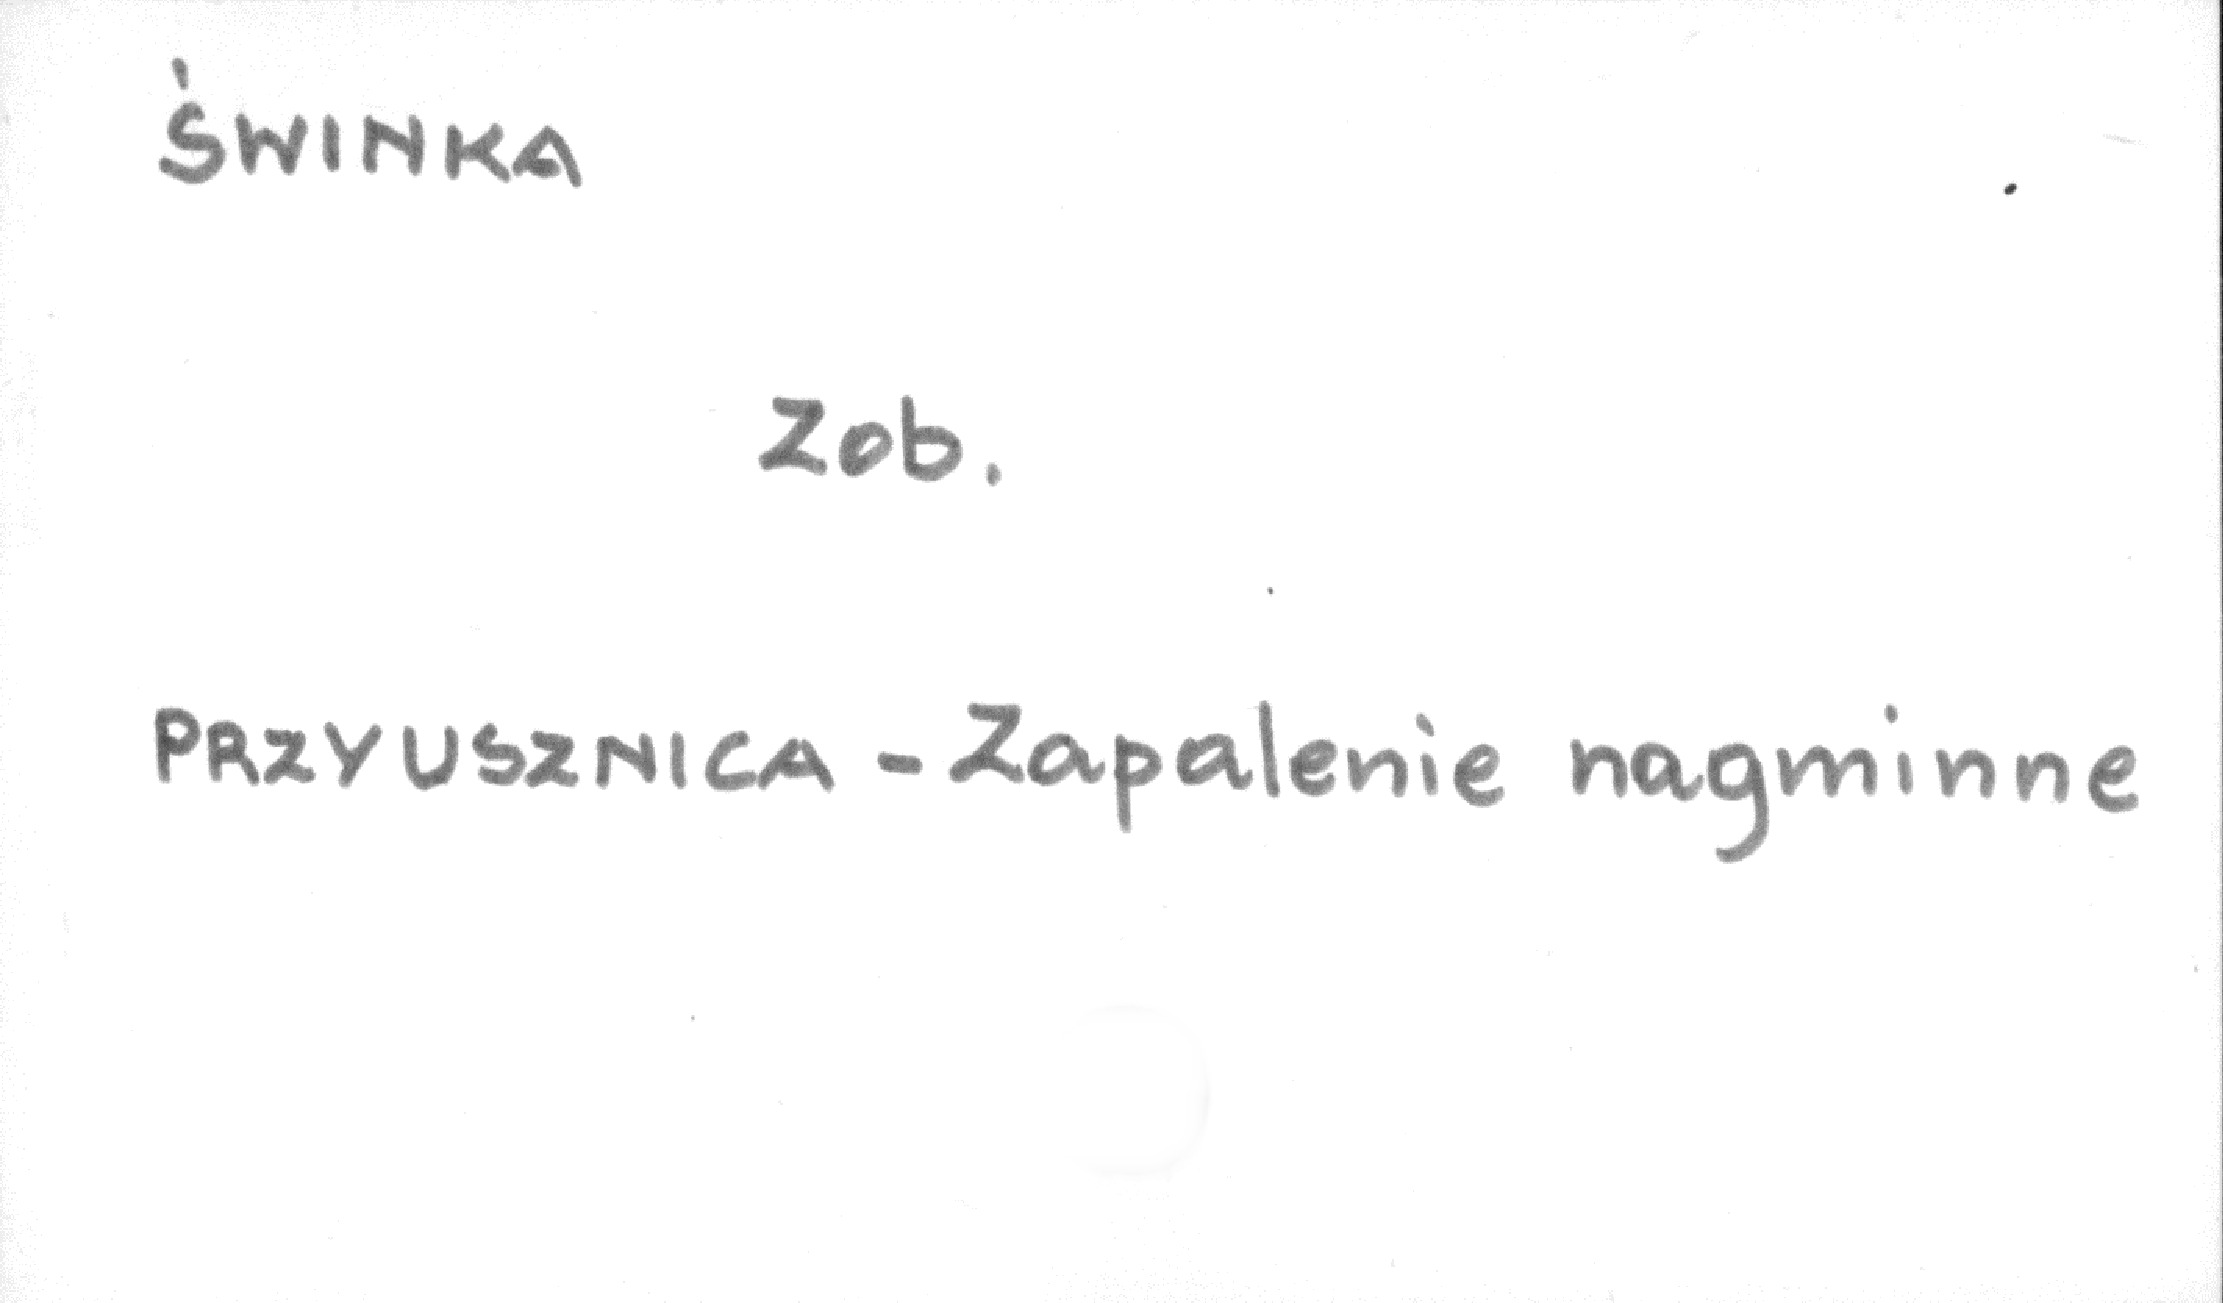 ŚWINKA
Zob.
PRZYUSZNICA - Zapalenie nagminne